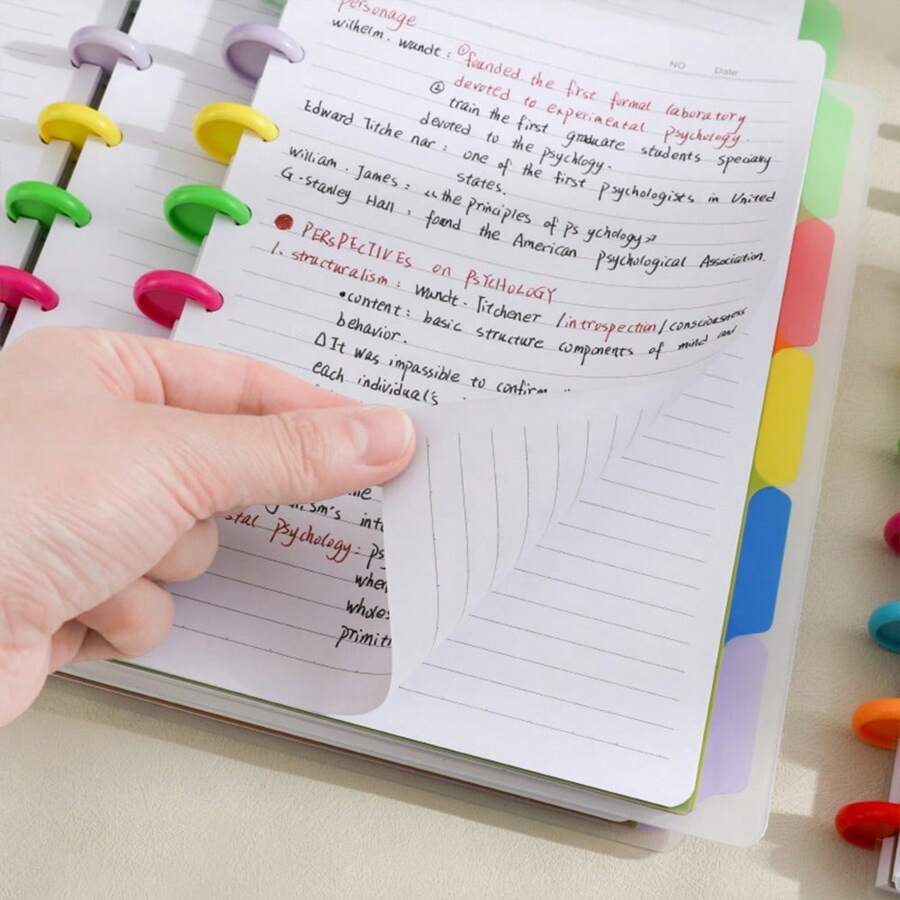 personage
NO Date
wilhelm. wundt : ① founded the first formal laboratory
② devoted to experimental psychology.
train the first graduate students specialy
devoted to the psychlogy.
Edward Titche nar : one of the first psychologists in United
states.
William. James : 《the principles of ps ychology》
G. stanley Hall , found the American psychological Association.
PERSPECTIVES on PSYCHOLOGY
1. structuralism : Wundt. Titchener / introspection / consciousness
•content : basic structure components of mind and
behavior.
Δ It was impassible to confirm
each individual's
psychology :